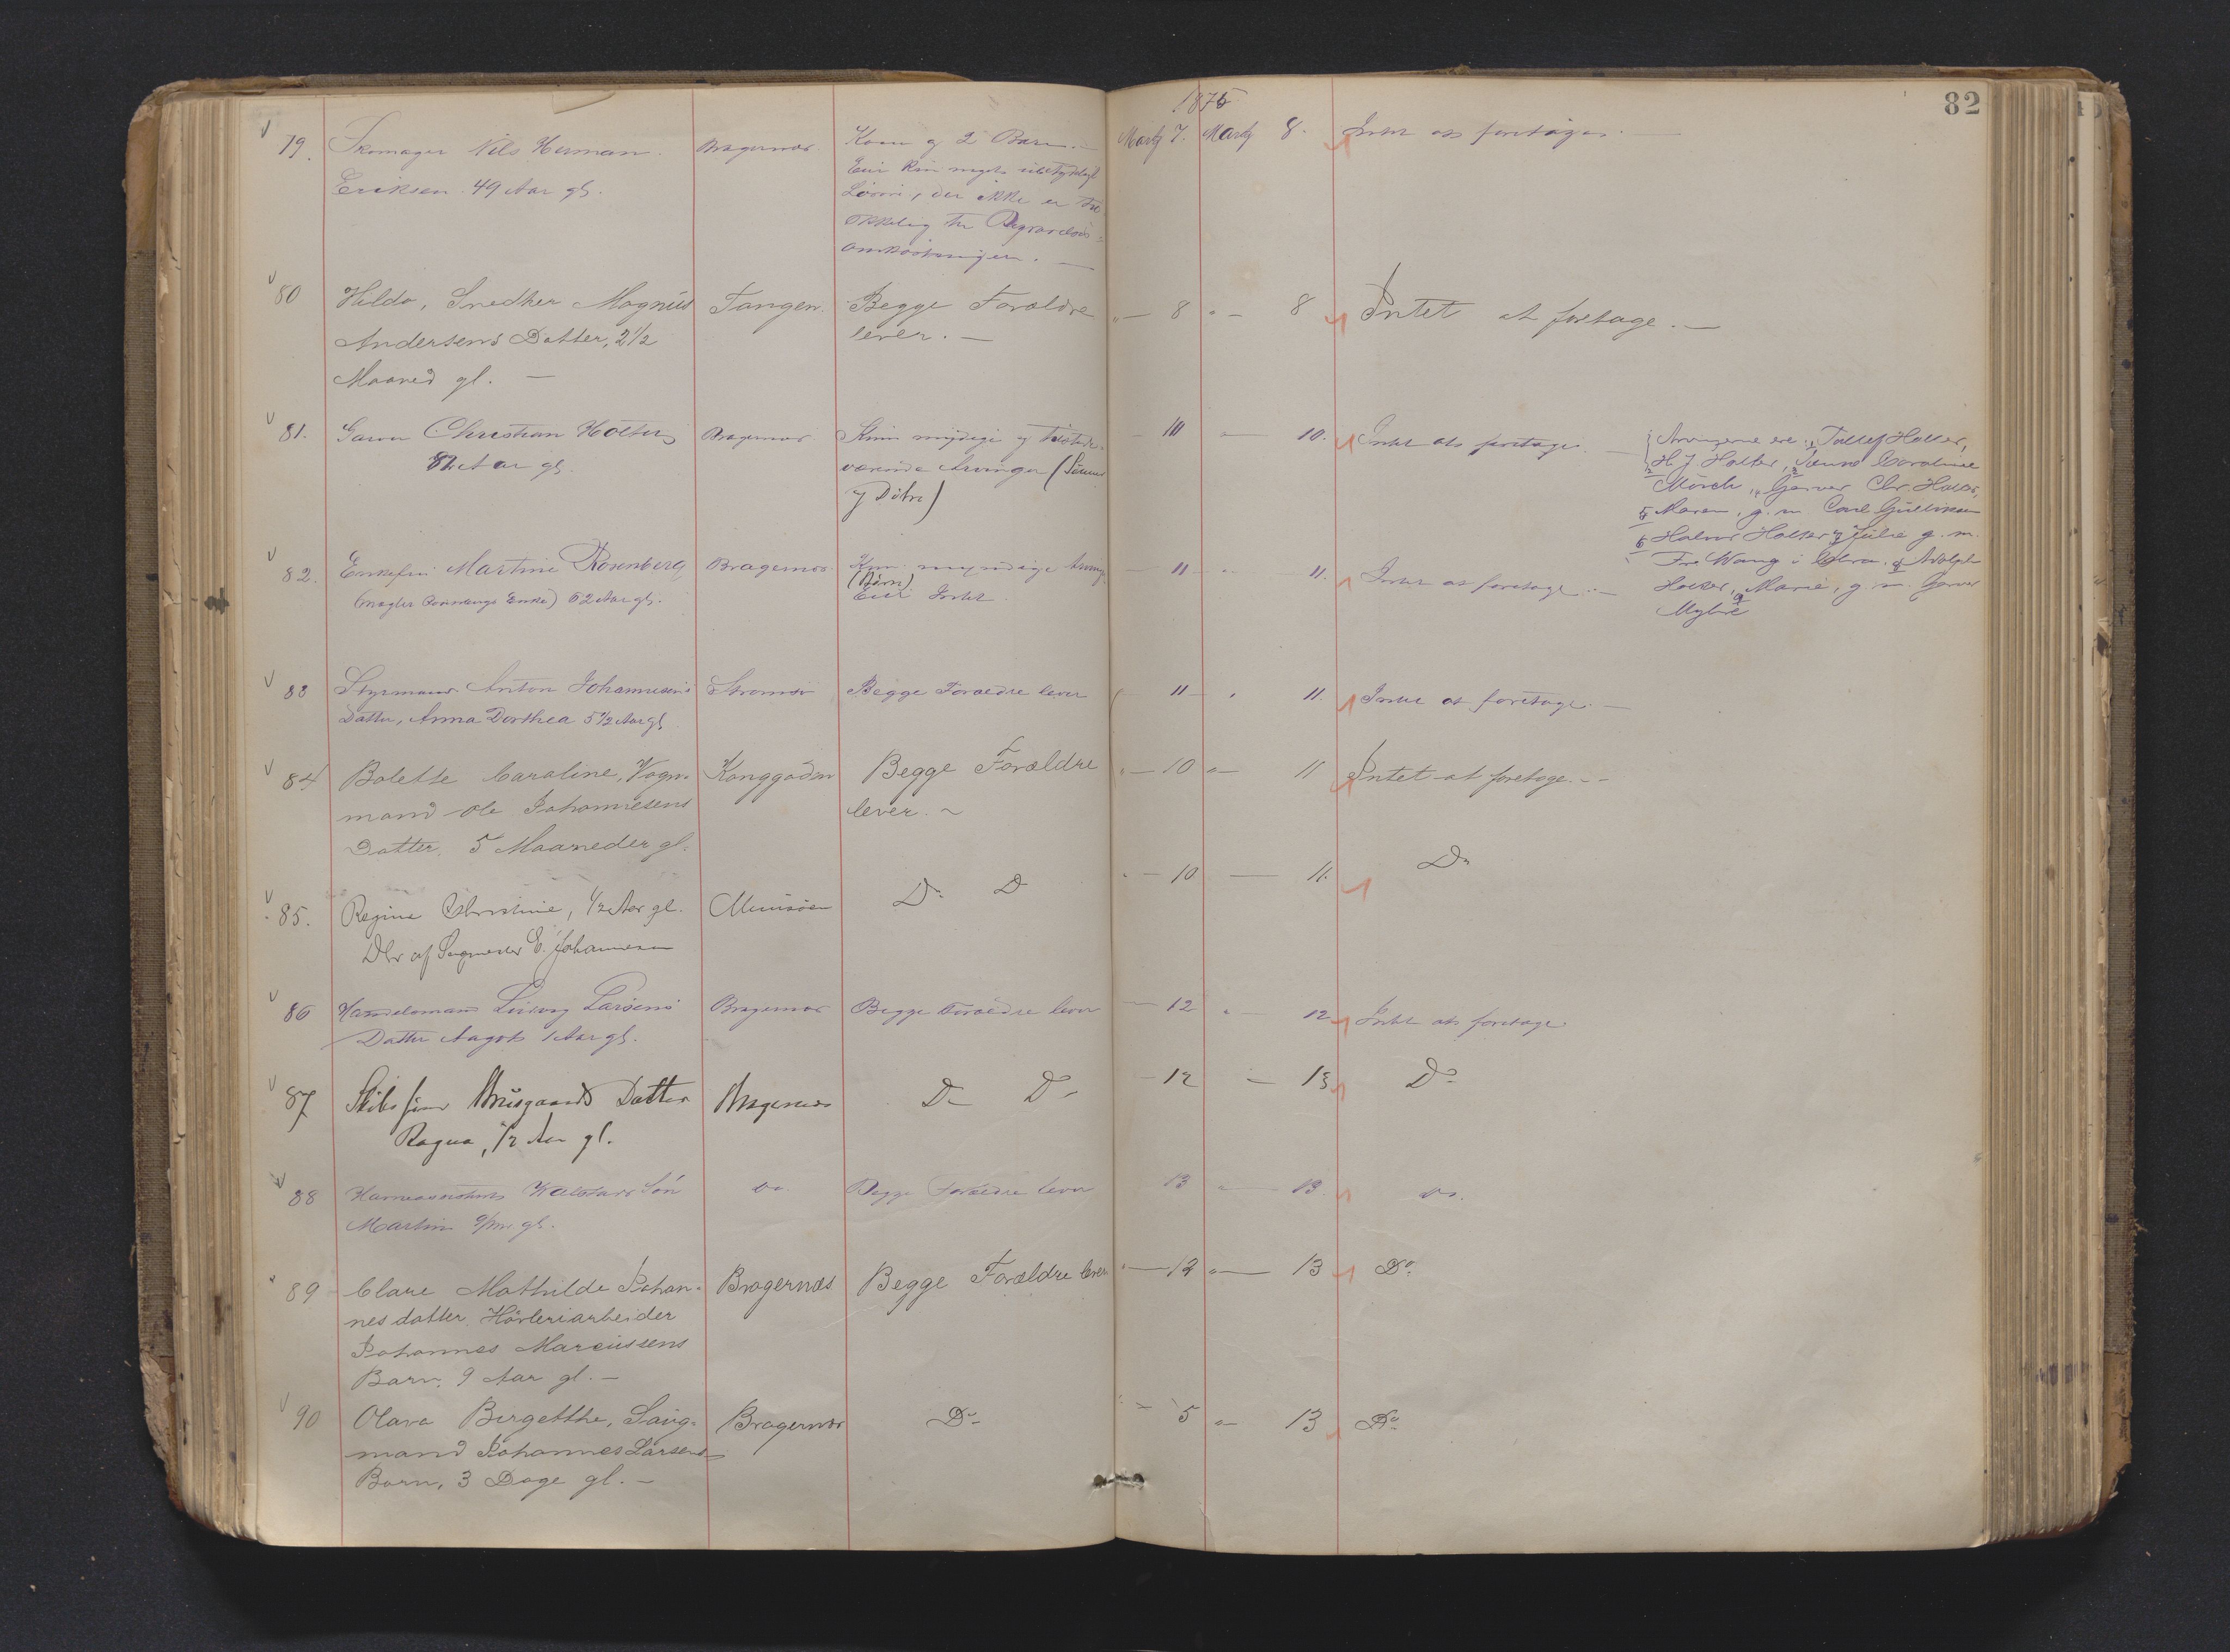 1875
82
79. Skomager Nils Herman Bragernæs Kone og 2 Børn. Martz 7. Martz 8. Intet at foretage. —
Eriksen. 49 Aar gl.
Eier kun noget ubetydeligt
Løsøre, der ikke er til-
strækkelig til Begravelses-
omkostninger. —
80 Hilda, Snedker Magnus Tangen. Begge Forældre " — 8 " — 8 Intet at foretage. —
Andersens Datter, 2 1/2 lever. —
Maaned gl. —
81. Garver Christian Holter Bragernæs Kun myndige og tilstede- — 10 — 10. Intet at foretage.
82 Aar gl. værende Arvinger (Sønner
og Døtre)
Arvingerne ere: Tollef Holter,
2 H. J. Holter, 3 Caroline
Mörch, 4 Garver Chr. Holter,
5 Maren, g. m. Carl Gulliksen
6 Halvor Holter 7 Julie g. m.
Wang i Chra. 8 Adolph
Holter, Marie, g. m. Garver
9 Myhre
82. Enkefru Martine Rosenberg Bragernæs. Kun myndige Arving. — 11 — " — 11. Intet at foretage. —
(Børn)
(Mægler Rosenbergs Enke) 62 Aar gl. Eier Intet.
83 Styrmand Anton Johannesens Strømsø Begge Forældre lever — 11 — " 11. Intet at foretage. —
Datter, Anna Dorthea 5 1/2 Aar gl.
84 Bolette Caroline, Vogn- Konggaden Begge Forældre " — 10 " — 11 Intet at foretage. —
mand Ole Johannesens lever. ~
Datter, 5 Maaneder gl.
85. Regine Christine, 1/2 Aar gl. Do D " — 10 — 11. Do
Dtr af E. Johannesen
86 Handelsmand Ludvig Larsens Bragernæs Begge Forældre lever — 12 " — 12 Intet at foretage
Datter Aagot 1 Aar gl.
87 Datter Bragernæs Do Do — 12 — 13 Do
Ragna, 1/2 Aar gl.
88 Søn Do. Begge Forældre lever 13 " — 13. Do.
Martin gl.
89 Clara Mathilde Johan- Bragernæs Begge Forældre lever " — 12 " — 13 Do
nesdatter, Høvleriarbeider
Johannes Marcussens
Barn, 9 Aar gl. —
90 Olava Birgetthe, Saug- Bragernæs Do " — 5 " — 13 Do
mand Johannes Larsens
Barn, 3 Dage gl. —